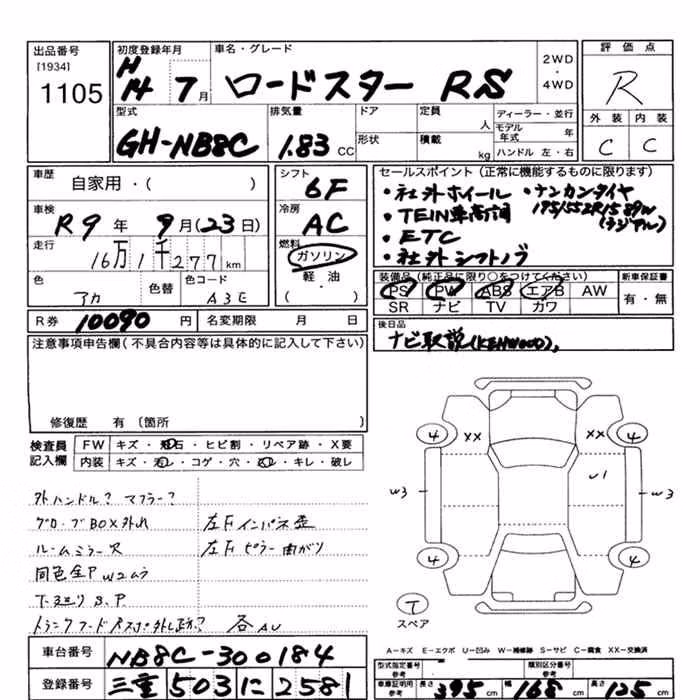 出品番号 初度登録年月 車名・グレード 2WD・4WD 評価点
[1934] H
1105 14 7月 ロードスター RS R
型式 排気量 ドア 定員 人 ディーラー・並行 外装 内装
GH-NB8C 1.83 CC 形状 積載 kg モデル年式 年 C C
ハンドル 左・右
車歴 シフト セールスポイント(正常に機能するものに限ります)
自家用・( ) 6F ・社外ホイール ・ナンカンタイヤ
車検 冷房 ・TEIN車高調 195/55ZR15 89W
R9年 9月(23日) AC ・ETC (ラジアル)
走行 燃料 ・社外シフトノブ
16万1千277km ガソリン
色 色替 色コード 軽・油 装備品(純正品に限り○をつけてください) 新車保証書
アカ A3E ( ) PS PW ABS エアB AW 有・無
SR ナビ TV カワ
R券 10090円 名変期限 月 日 後日品
注意事項申告欄(不具合内容等は具体的に記入して下さい) ナビ取説(KENWOOD),
修復歴 有〔箇所 〕
検査員 FW キズ・飛石・ヒビ割・リペア跡・X要
記入欄 内装 キズ・汚レ・コゲ・穴・スレ・キレ・破レ
4 XX XX 4
W3 U1 W3
4 4
外ハンドル? マフラー?
グローブBOX外れ 左Fインパネ歪
ルームミラー欠 左Fピラー曲がり
同色全P W2ムラ
下廻りS.P
各AU
T
スペア
A-キズ E-エクボ U-凹み W-補修跡 S-サビ C-腐食 XX-交換済
車台番号 NB8C-300184 型式指定番号 参考 類別区分番号 参考
登録番号 三重 503 に 2581 車庫証明用 参考 長さ 395cm 幅 168cm 高さ 125cm